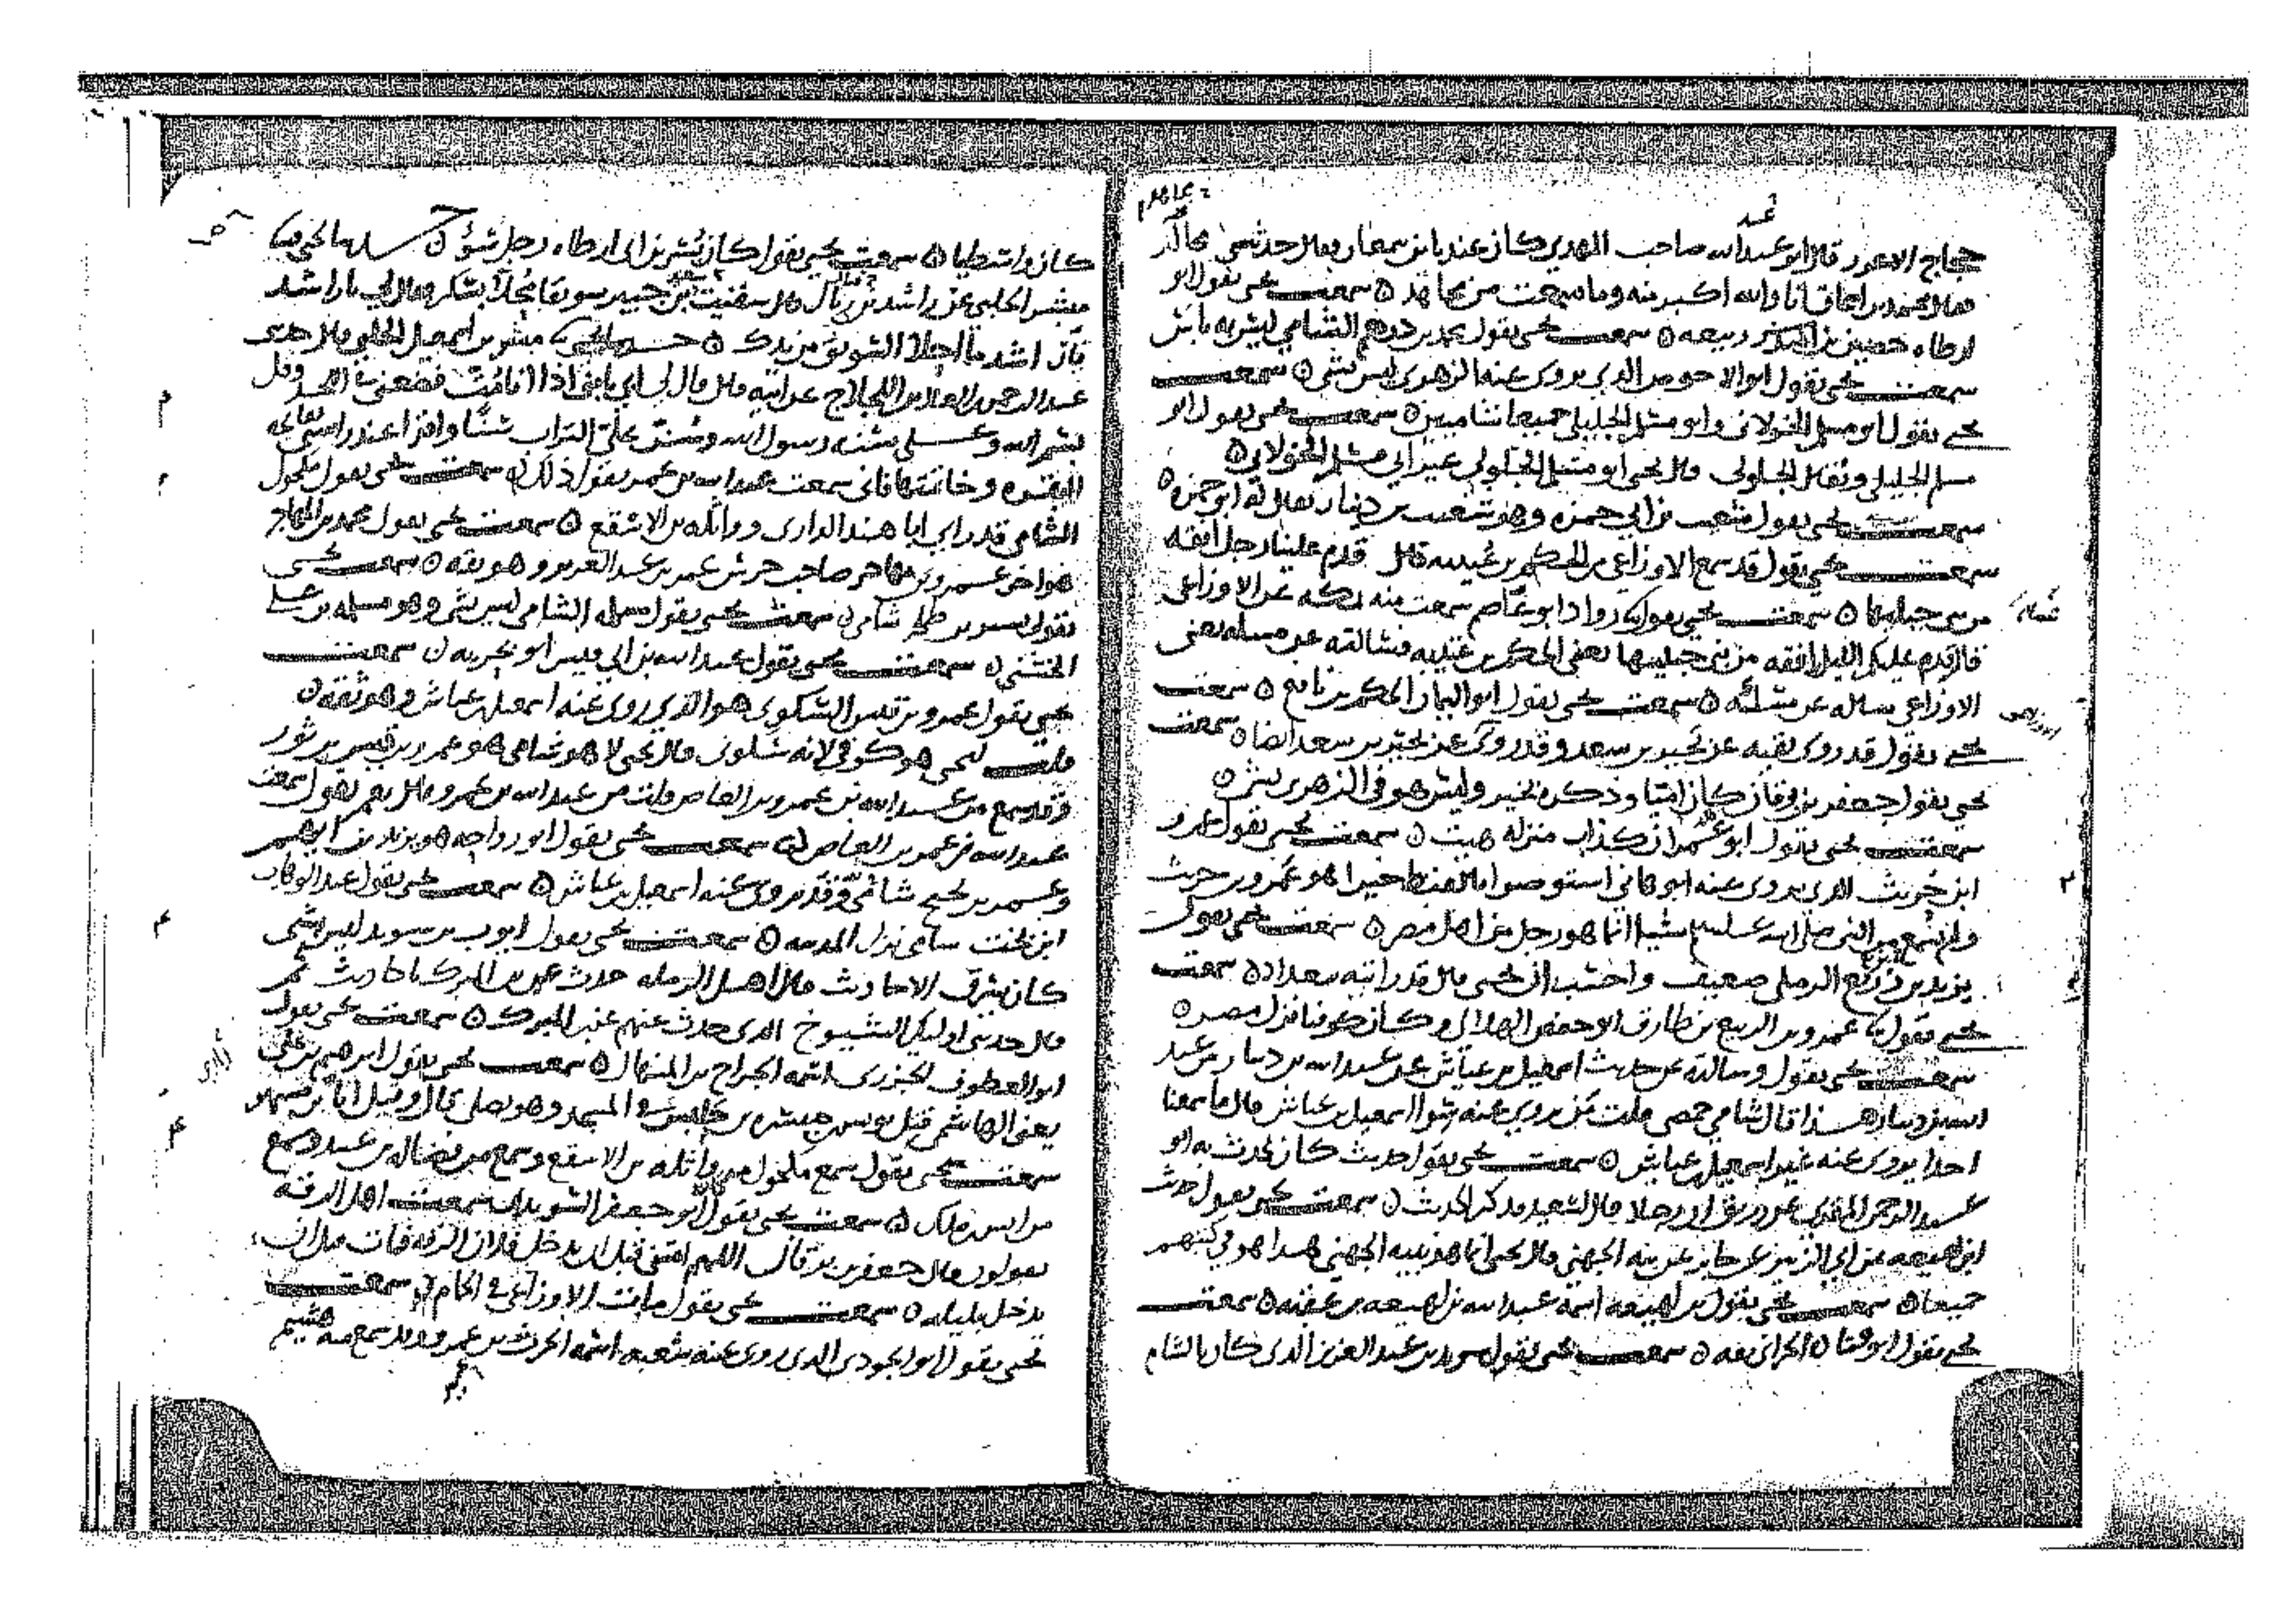 حجاج الاعور قال ابو عبيد الله صاحب المهدي كان عندنا ابن سمعان فقال حدثني مجاهد
فقال محمد بن اسحاق انا والله اكبر منه وما سمعت من مجاهد ٥ سمعت يحيى يقول ابو
ارطاه حصين بن ربيعه ٥ سمعت يحيى يقول محمد بن درهم الشامي ليس به باس
سمعت يحيى يقول ابو الاحوص الذي يروي عنه الزهري ليس بشي ٥ سمعت
يحيى يقول ابو مسلم الخولاني وابو مسلم الجليلي جميعا شاميين ٥ سمعت يحيى يقول ابو
مسلم الجليلي ويقال الجلولي قال يحيى ابو مسلم الجلولي غير ابي مسلم الخولاني ٥
سمعت يحيى يقول شعيب بن ابي حمزه وهو شعيب بن دينار يقال له ابو حمزه ٥
سمعت يحيى يقول قد سمع الاوزاعي من الحكم بن عتيبه قال قدم علينا رجل افقه
من بين جبليها ٥ سمعت يحيى يقول رواد ابو عاصم سمعت منه بمكه عن الاوزاعي
قال قدم عليكم الليله افقه من بين جبليها يعني الحكم بن عتيبه فسالته عن مسله يعني
الاوزاعي ساله عن مسئله ٥ سمعت يحيى يقول ابو اليمان الحكم بن نافع ٥ سمعت
يحيى يقول قد روى بقيه عن بحير بن سعد وقد روى عن بحير بن سعد ايضا ٥ سمعت
يحيى يقول جعفر بن برقان كان اميا وذكره بخير وليس هو في الزهري بشي ٥
سمعت يحيى يقول ابو عمران كذاب منزله هيت ٥ سمعت يحيى يقول عمرو
ابن حريث الذي يروي عنه ابو هاني استوصوا بالقبط خيرا هو عمرو بن حريث
ولم يسمع من النبي صلى الله عليه وسلم شيا انما هو رجل من اهل مصر ٥ سمعت يحيى يقول
يزيد بن زريع الرملي ضعيف واحسب ان يحيى قال قد رايته ببغداد ٥ سمعت
يحيى يقول عمرو بن الربيع بن طارق الاحمسي الهلالي وكان كوفيا نزل مصر ٥
سمعت يحيى يقول وسالته عن حديث اسمعيل بن عياش عن عبد الله بن دينار من عبد
الله بن دينار هذا قال شامي حمصي قلت من يروي عنه سوا اسمعيل بن عياش قال ما سمعنا
احدا يروي عنه غير اسمعيل بن عياش ٥ سمعت يحيى يقول حديث كان يحدث به ابو
عبد الرحمن المقري ان رجلا قال لشعيد فذكر الحديث ٥ سمعت يحيى يقول حديث
ابن لهيعه عن ابي الزبير عن جابر عن بنه الجهني قال يحيى انما هو نبيه الجهني هذا هو في كتبهم
جميعا ٥ سمعت يحيى يقول بن لهيعه اسمه عبد الله بن لهيعه بن عقبه ٥ سمعت
يحيى يقول ابو قتاده الحراني ثقه ٥ سمعت يحيى يقول سويد بن عبد العزيز الذي كان بالشام
كان واسطيا ٥ سمعت يحيى يقول كان بسر بن ابي ارطاه رجل سوء ٥
مبشر الحلبي عن راشد قال سقيت بن جبير سويقا مجلا بسكر فقال لي يا راشد
قال اشد ما اجلا السويق من يدك ٥ مبشر بن اسمعيل الحلبي قال حدثني
عبد الرحمن بن العلاء بن اللجلاج عن ابيه قال قال لي ابي يابني اذا انا مت فضعني في اللحد وقل
بسم الله وعلى سنه رسول الله وسن علي التراب سنا واقرا عند راسي بفاتحه
البقره وخاتمتها فاني سمعت عبد الله بن عمر يقول ذلك ٥ سمعت يحيى يقول مكحول
الشامي قد راى ابا هند الداري وواثله بن الاسقع ٥ سمعت يحيى يقول محمد بن المهاجر
هو اخو عمرو بن مهاجر صاحب حرس عمر بن عبد العزيز وهو ثقه ٥ سمعت يحيى
يقول شامي ٥ سمعت يحيى يقول مسلمه الشامي ليس بشي وهو مسلمه بن علي
الخشني ٥ سمعت يحيى يقول عبد الله بن ابي قيس ابو بحريه ٥ سمعت
يحيى يقول عمرو بن قيس السكوني هو الذي روى عنه اسمعيل بن عياش وهو ثقه ٥
قلت ليحيى هو كوفي لانه سكوني قال يحيى لا هو شامي هو عمرو بن قيس بن ثور
وقد سمع من عبد الله بن عمرو بن العاص قلت من عبد الله بن عمرو قال نعم يقول سمعت
عبد الله بن عمرو بن العاص ٥ سمعت يحيى يقول ابو رواحه هو يزيد بن ايهم
وعمر بن بحيح شامي وقد يروي عنه اسمعيل بن عياش ٥ سمعت يحيى يقول عبد الوهاب
ابن بخت شامي نزل المدينه ٥ سمعت يحيى يقول ايوب بن سويد ليس بشي
كان يسرق الاحاديث قال اهل الرمله حدث عن بن المبارك باحاديث ثم
قال حدثني اوليك الشيوخ الذي حدث عنهم عن بن المبارك ٥ سمعت يحيى يقول
ابو العطوف الجزري اسمه الجراح بن المنهال ٥ سمعت يحيى يقول ابرهيم بن علي
يعني الهاشمي قتل يونس بن ميسره بن حلبس في المسجد وهو يصلي قال وقتل ابا بن مسهر
سمعت يحيى يقول سمع مكحول من واثله بن الاسقع وسمع من فضاله بن عبيد وسمع
من انس بن ملك ٥ سمعت يحيى يقول ابو جعفر السويدي سمعت اهل الرقه
يقولون قال جعفر بن برقان اللهم امتني قبل ان يدخل فلان الرقه فمات قبل ان
يدخل بليله ٥ سمعت يحيى يقول مات الاوزاعي في الحمام ٥ سمعت
يحيى يقول ابو الجودي الذي روى عنه شعبه اسمه الحرث بن عمير وقد سمع منه هشيم